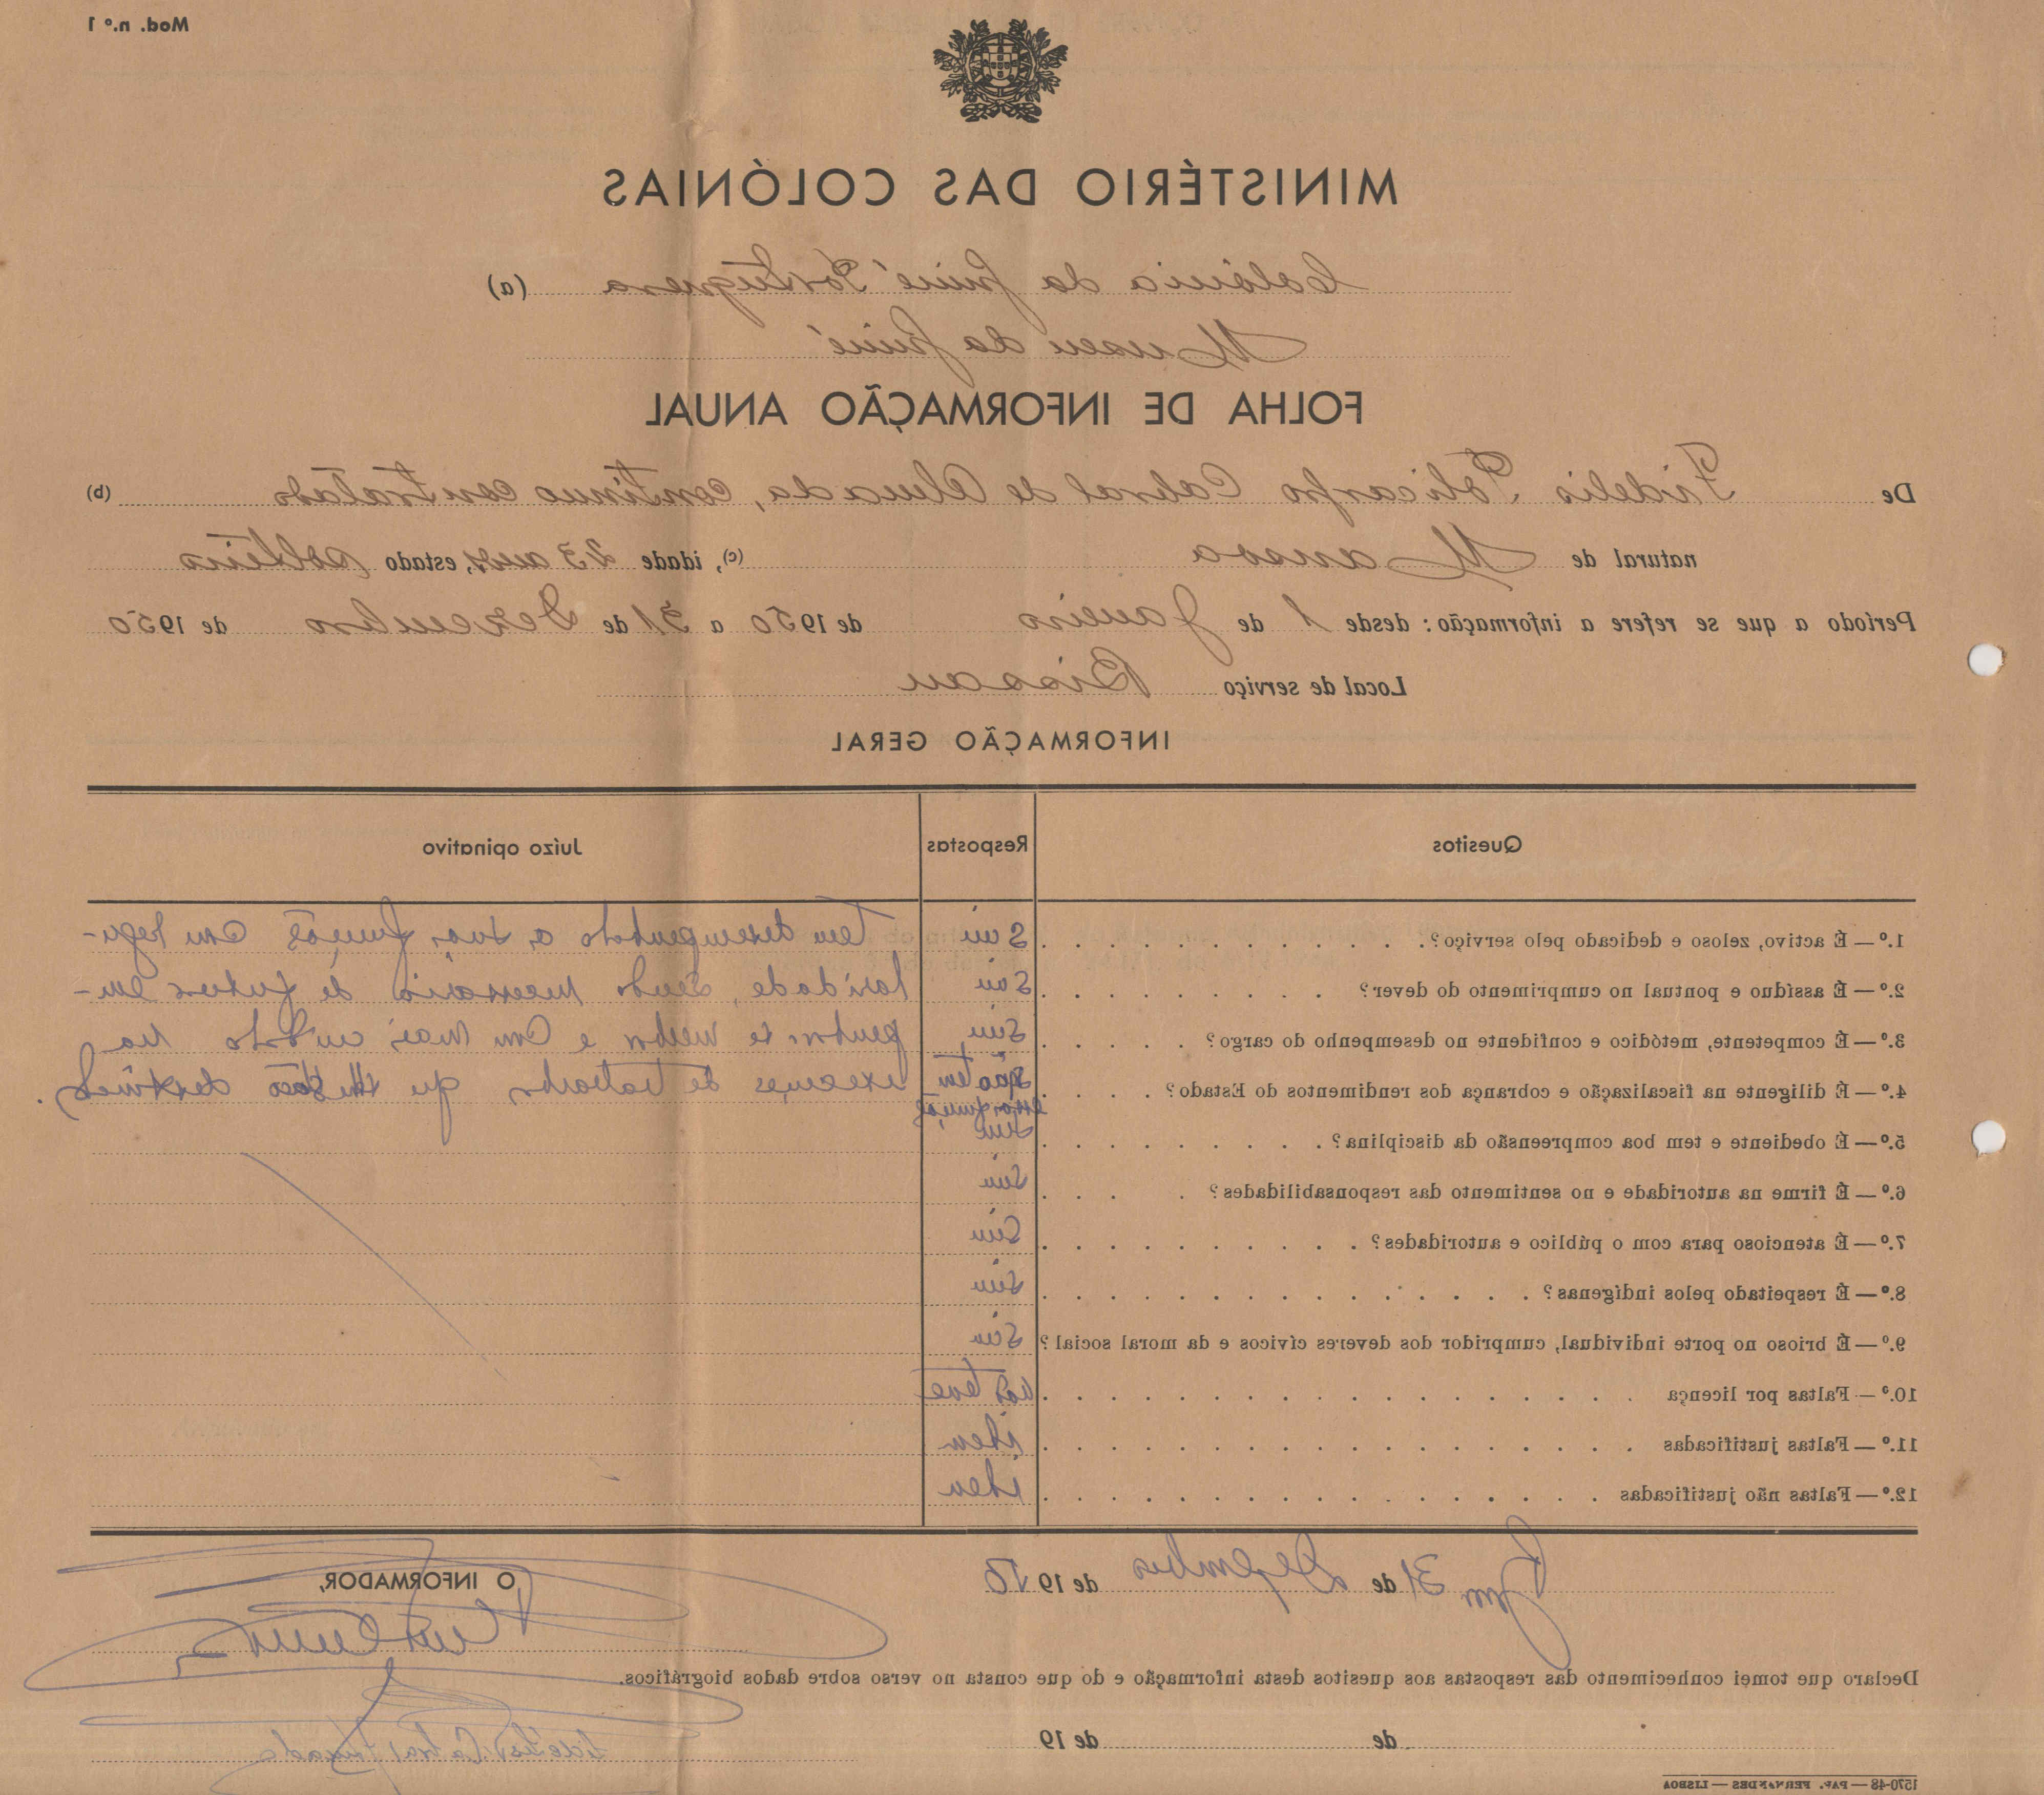 Mod. n.º 1
MINISTÉRIO DAS COLÓNIAS
Colónia da Guiné Portuguesa (a)
Museu da Guiné
FOLHA DE INFORMAÇÃO ANUAL
De Fidelis Policarpo Cabral de Almada, contínuo contratado (b)
natural de Mansoa (c), idade 23 anos, estado solteiro
Período a que se refere a informação: desde 1 de Janeiro de 1950 a 31 de Dezembro de 1950
Local de serviço Bissau
INFORMAÇÃO GERAL
Quesitos Respostas Juízo opinativo
1.º — É activo, zeloso e dedicado pelo serviço? Sim Tem desempenhado as suas funções com regu-
2.º — É assíduo e pontual no cumprimento do dever? Sim laridade, sendo necessário de futuro em-
3.º — É competente, metódico e confidente no desempenho do cargo? Sim penhar-se melhor e com mais cuidado na
4.º — É diligente na fiscalização e cobrança dos rendimentos do Estado? Não tem essas funções execução de trabalhos que lhe são
5.º — É obediente e tem boa compreensão da disciplina? Sim
6.º — É firme na autoridade e no sentimento das responsabilidades? Sim
7.º — É atencioso para com o público e autoridades? Sim
8.º — É respeitado pelos indígenas? Sim
9.º — É brioso no porte individual, cumpridor dos deveres cívicos e da moral social? Sim
10.º — Faltas por licença não teve
11.º — Faltas justificadas idem
12.º — Faltas não justificadas idem
31 de Dezembro de 1950
O INFORMADOR,
Declaro que tomei conhecimento das respostas aos quesitos desta informação e do que consta no verso sobre dados biográficos.
de de 19
Fidélis Cabral Almada
1570-48 — PAP. FERNANDES — LISBOA